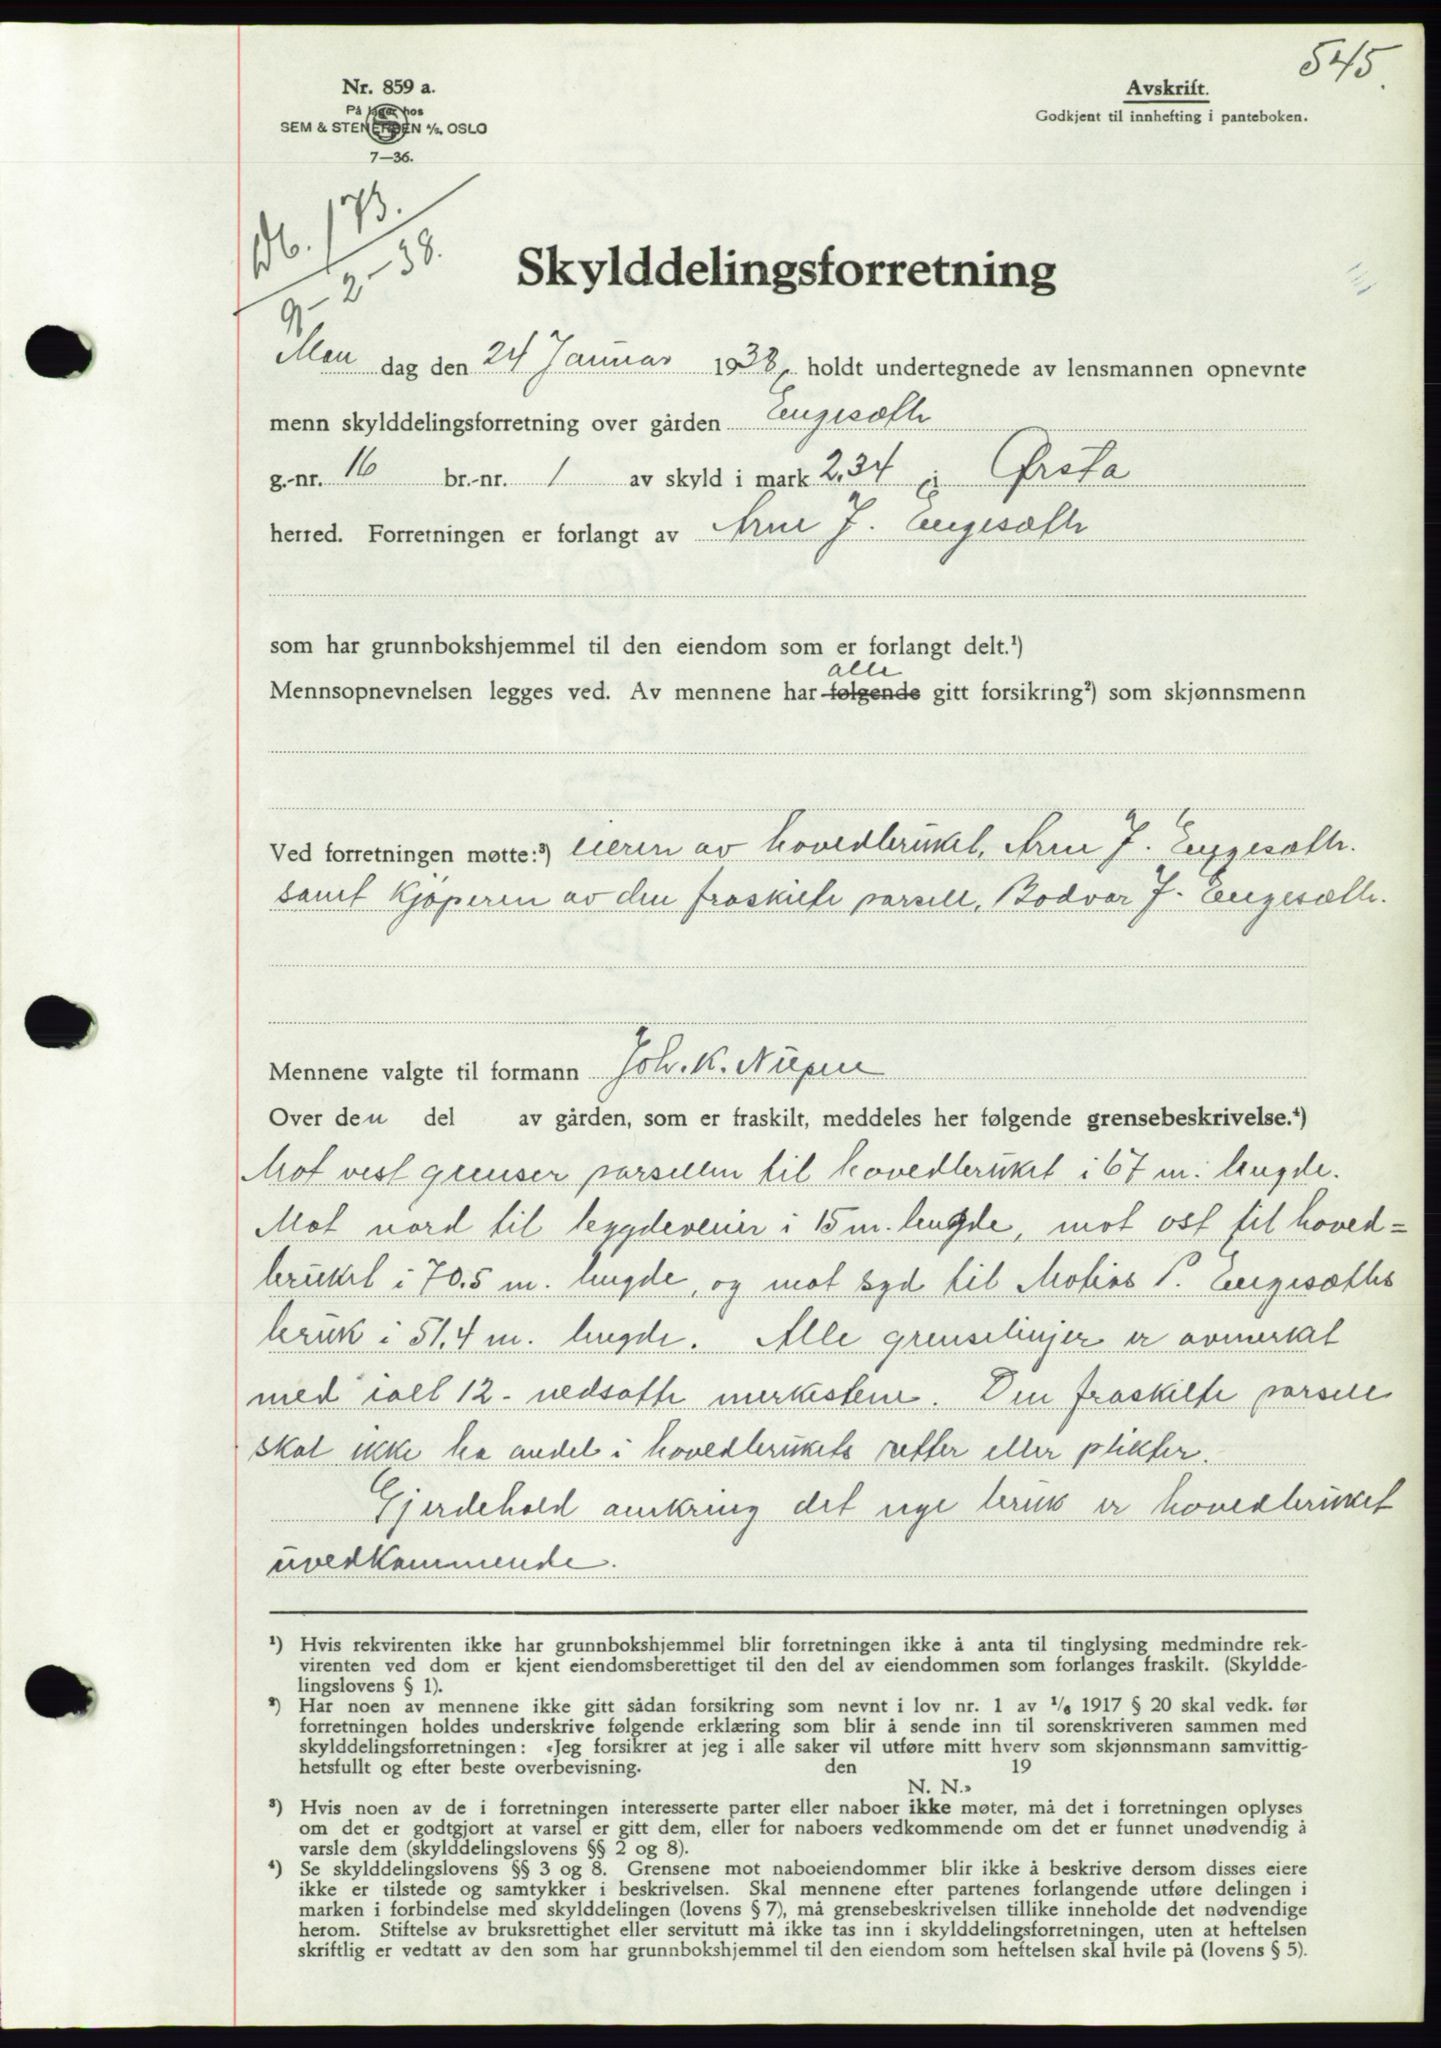 545.
Nr. 859 a.
På lager hos
SEM & STENERSEN A/S, OSLO
7—36.
Avskrift.
Godkjent til innhefting i panteboken.
Db. 173.
9-2-38.
Skylddelingsforretning
Man dag den 24 Januar 1938, holdt undertegnede av lensmannen opnevnte
menn skylddelingsforretning over gården Engesæth
g.-nr. 16 br.-nr. 1 av skyld i mark 2,34 i Ørsta
herred. Forretningen er forlangt av Arne J. Engesæth
som har grunnbokshjemmel til den eiendom som er forlangt delt.¹)
alle
Mennsopnevnelsen legges ved. Av mennene har følgende gitt forsikring²) som skjønnsmenn
Ved forretningen møtte:³) eieren av hovedbruket, Arne J. Engesæth.
samt kjøperen av den fraskilte parsell, Bodvar J. Engesæth.
Mennene valgte til formann Joh. K.
Over den del av gården, som er fraskilt, meddeles her følgende grensebeskrivelse.⁴)
Mot vest grenser parsellen til hovedbruket i 67 m. lengde.
Mot nord til bygdeveien i 15 m. lengde, mot ost til hoved=
bruket i 70.5 m. lengde, og mot syd til Matias P. Engesæths
bruk i 51,4 m. lengde. Alle grenselinjer er avmerket
med ialt 12 - nedsatte merkestene. Den fraskilte parsell
skal ikke ha andel i hovedbrukets retter eller plikter.
Gjerdehold omkring det nye bruk er hovedbruket
uvedkommende.
¹) Hvis rekvirenten ikke har grunnbokshjemmel blir forretningen ikke å anta til tinglysing medmindre rek-
virenten ved dom er kjent eiendomsberettiget til den del av eiendommen som forlanges fraskilt. (Skyldde-
lingslovens § 1).
²) Har noen av mennene ikke gitt sådan forsikring som nevnt i lov nr. 1 av 1/6 1917 § 20 skal vedk. før
forretningen holdes underskrive følgende erklæring som blir å sende inn til sorenskriveren sammen med
skylddelingsforretningen: «Jeg forsikrer at jeg i alle saker vil utføre mitt hverv som skjønnsmann samvittig-
hetsfullt og efter beste overbevisning. den 19
N. N.»
³) Hvis noen av de i forretningen interesserte parter eller naboer ikke møter, må det i forretningen oplyses
om det er godtgjort at varsel er gitt dem, eller for naboers vedkommende om det er funnet unødvendig å
varsle dem (skylddelingslovens §§ 2 og 8).
⁴) Se skylddelingslovens §§ 3 og 8. Grensene mot naboeiendommer blir ikke å beskrive dersom disses eiere
ikke er tilstede og samtykker i beskrivelsen. Skal mennene efter partenes forlangende utføre delingen i
marken i forbindelse med skylddelingen (lovens § 7), må grensebeskrivelsen tillike inneholde det nødvendige
herom. Stiftelse av bruksrettighet eller servitutt må ikke tas inn i skylddelingsforretningen, uten at heftelsen
skriftlig er vedtatt av den som har grunnbokshjemmel til den eiendom som heftelsen skal hvile på (lovens § 5).